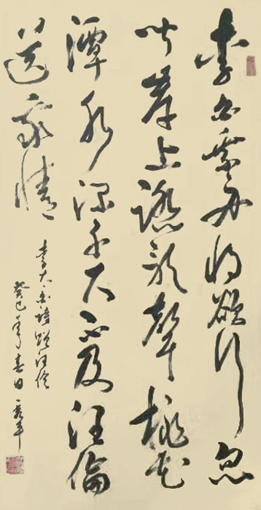 李白乘舟将欲行忽
闻岸上踏歌聲桃花
潭水深千尺不及汪倫
送我情
李太白詩贈汪倫
癸巳年春日